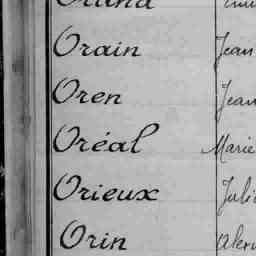 Orain Jean
Oren Jean
Oréal Marie
Orieux
Orin